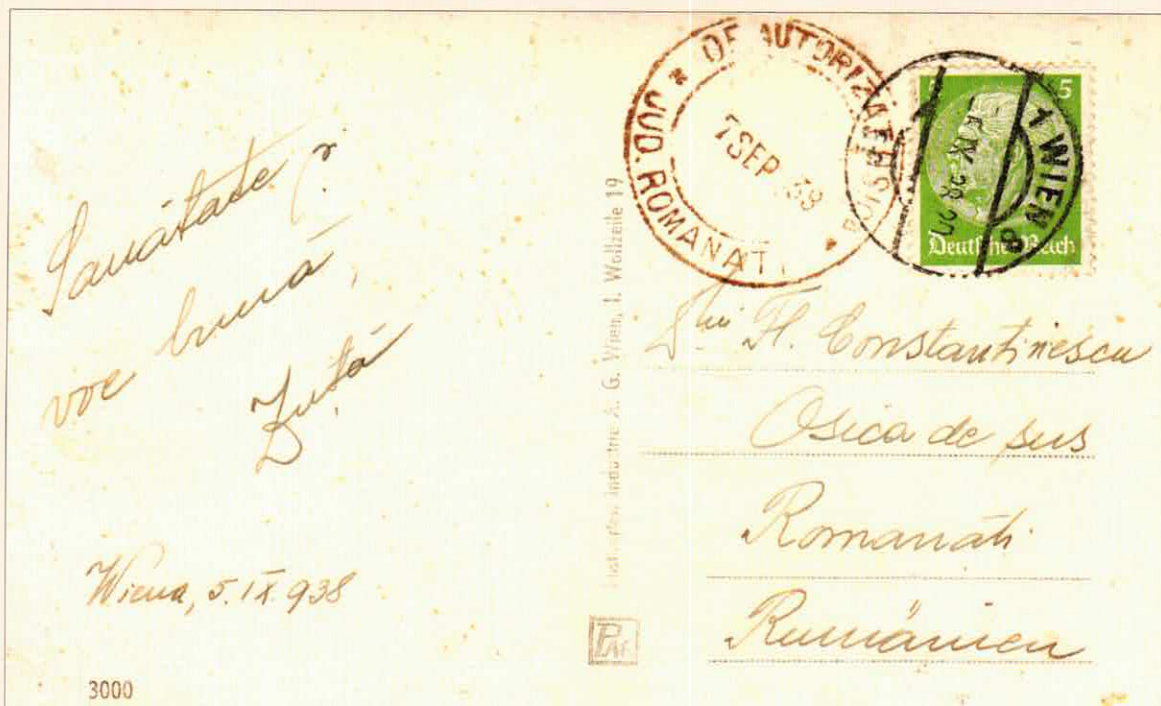 Sanătate și
voe bună,
Zuță
Wiena, 5.IX.938
3000
A. G. Wien, I. Wollzeile 19
PAG
* OF. AUTORIZAT *
JUD. ROMANATI
7 SEP 39
1 WIEN 8
5
5
Deutsches Reich
Fl. Constantinescu
Osica de sus
Romanăti
Rumänien